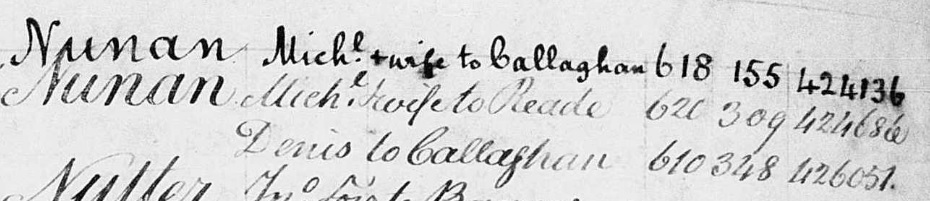 Nunan Michl. + wife to Callaghan 618 155 424136
Nunan Michl. + wife to Reade 620 309 424686
Denis to Callaghan 610 348 426051.
Nutter Jno.